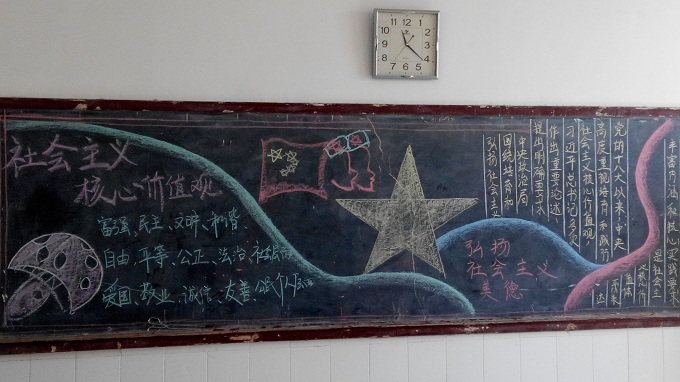 12
11 1
10 2
9 3
8 4
7 6 5
社会主义
核心价值观
富强、民主、文明、和谐、
自由、平等、公正、法治、
爱国、敬业、诚信、友善、
弘扬
社会主义
美德
党的十八大以来,中央
高度重视培育和践行
社会主义核心价值观,
习近平总书记多次
作出重要论述
提出明确要求
中央政治局
围绕培育和
弘扬社会主义